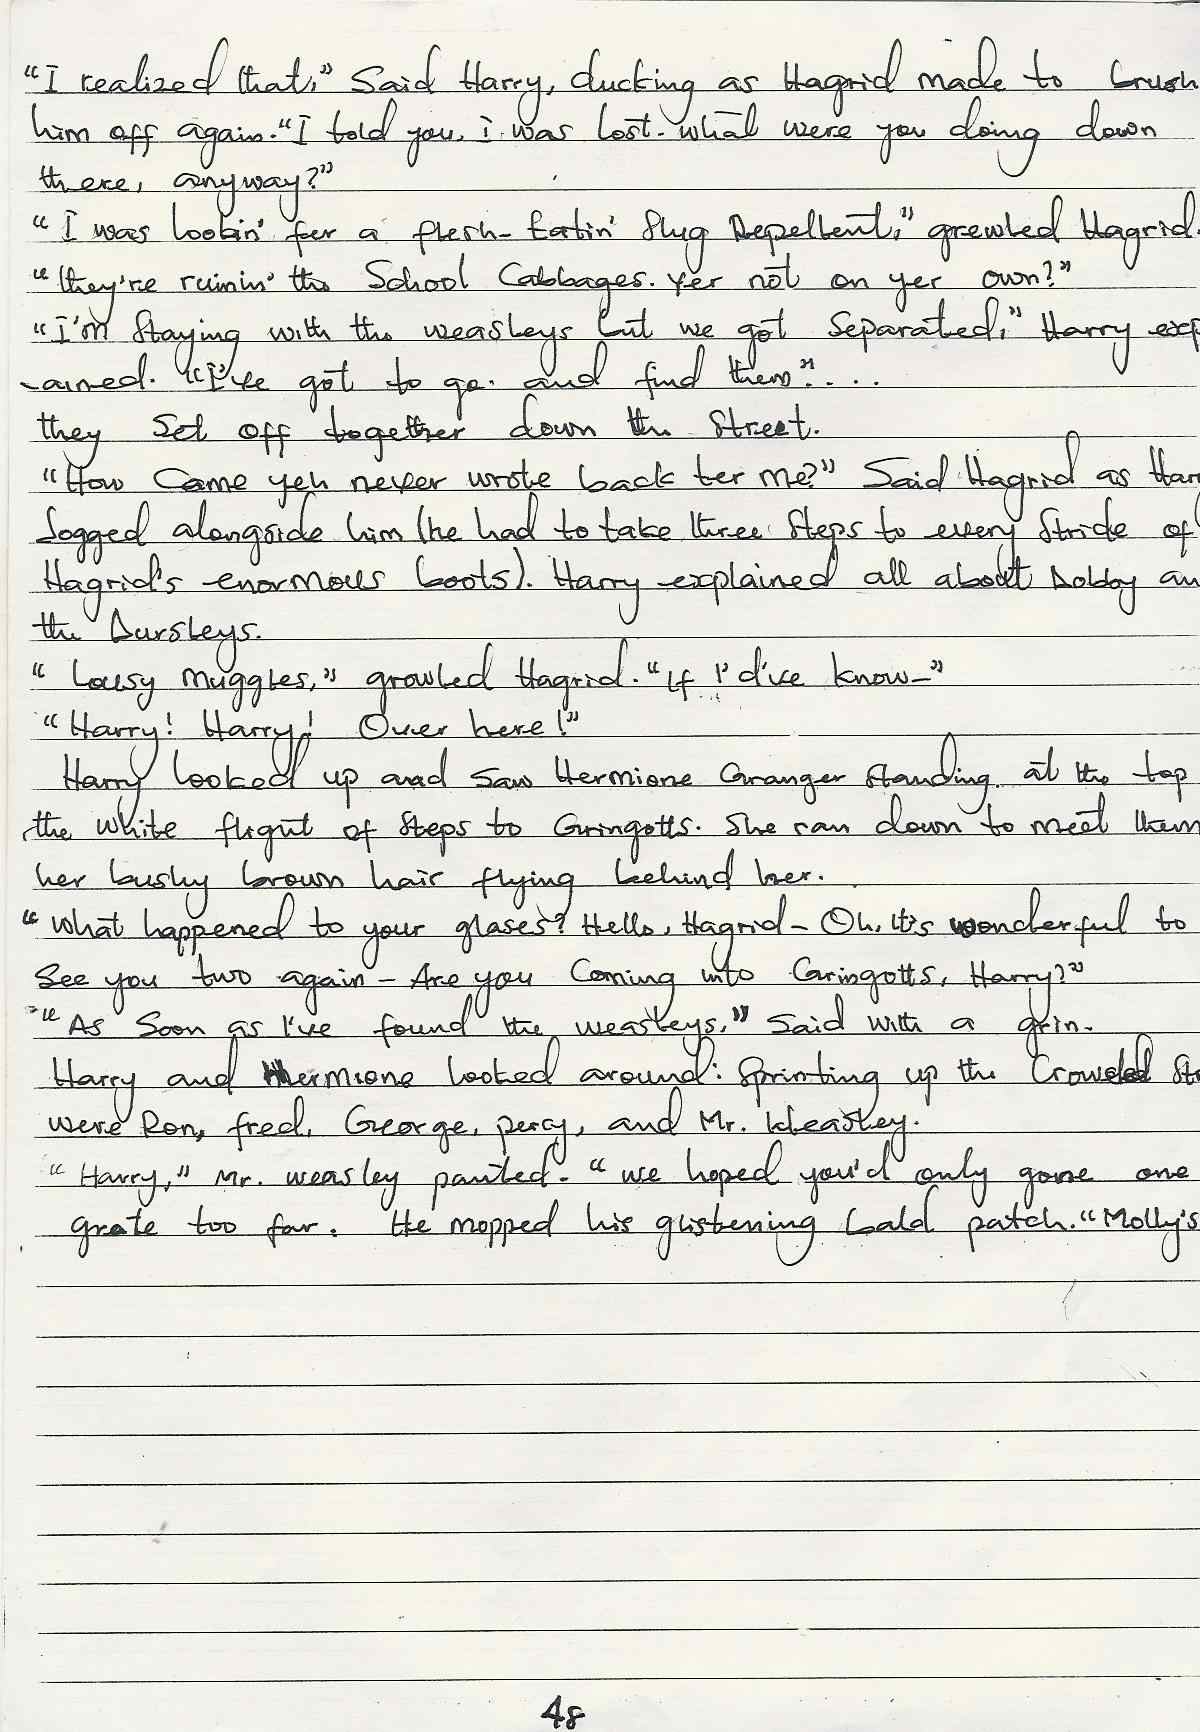 "I realized that," Said Harry, ducking as Hagrid made to brush
him off again. "I told you, i was lost. what were you doing down
there, anyway?"
"I was lookin' fer a flesh-Eatin' Slug Repellent," growled Hagrid.
"they're ruinin' the School Cabbages. Yer not on yer own?"
"I'm Staying with the weasleys but we got Separated," Harry exp
-ained. "I've got to go. and find them"....
they Set off together down the Street.
"How Came yeh never wrote back ter me?" Said Hagrid as Harr
Jogged alongside him (he had to take three Steps to every Stride of
Hagrid's enormous boots). Harry explained all about Dobby an
the Dursleys.
"Lousy Muggles," growled Hagrid. "If I'd've know—"
"Harry! Harry! Over here!"
Harry looked up and Saw Hermione Granger Standing at the top
the white flight of Steps to Gringotts. She ran down to meet them
her bushy brown hair flying behind her.
"What happened to your glases? Hello, Hagrid – Oh, It's wonderful to
See you two again – Are you Coming into Garingotts, Harry?"
"As Soon as I've found the weasleys," Said with a grin.
Harry and Hermione looked around: Sprinting up the Crowded St
were Ron, fred, George, percy, and Mr. Weasley.
"Harry," Mr. weasley panted. "we hoped you'd only gone one
grate too far. He mopped his glistening bald patch. "Molly's
48